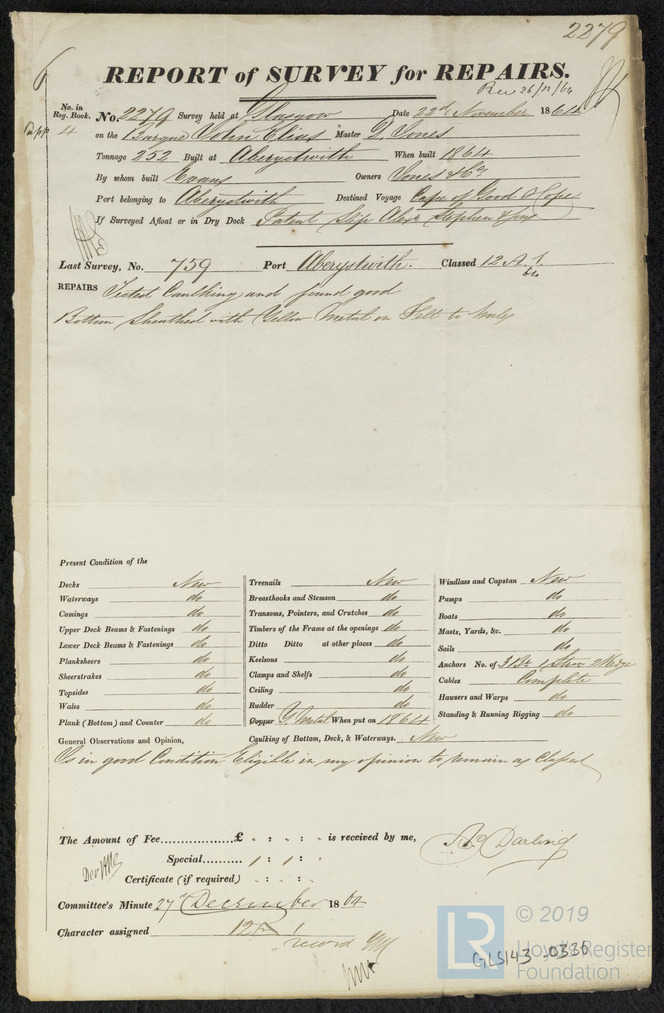 2279
6
REPORT of SURVEY for REPAIRS.
Rec 26/12/64
No. in Reg. Book.
4
No. 2279 Survey held at Glasgow Date 22nd November 1864
on the Barque "John Elias" Master D. Jones
Tonnage 252 Built at Aberystwith When built 1864
By whom built Evans Owners Jones & Co
Port belonging to Aberystwith Destined Voyage Cape of Good Hope
If Surveyed Afloat or in Dry Dock Patent Slip Alexr Stephen & Sons
Last Survey, No. 759 Port Aberystwith. Classed 12 A.1.
REPAIRS Tested Caulking and found good
Bottom Sheathed with Yellow Metal on Felt to Wales
Present Condition of the
Decks New
Waterways do
Comings do
Upper Deck Beams & Fastenings do
Lower Deck Beams & Fastenings do
Planksheers do
Sheerstrakes do
Topsides do
Wales do
Plank (Bottom) and Counter do
Treenails New
Breasthooks and Stemson do
Transoms, Pointers, and Crutches do
Timbers of the Frame at the openings do
Ditto Ditto at other places do
Keelsons do
Clamps and Shelfs do
Ceiling do
Rudder do
Copper Y. Metal When put on 1864
Caulking of Bottom, Deck, & Waterways. New
Windlass and Capstan New
Pumps do
Boats do
Masts, Yards, &c. do
Sails do
Anchors No. of 3 Br 1 Stm 2 Kedge
Cables Complete
Hawsers and Warps do
Standing & Running Rigging do
General Observations and Opinion,
Is in good Condition Eligible in my opinion to remain as Classed
The Amount of Fee.................£ . : . : . is received by me,
Ad Darling
Special.......... 1 : 1 :
Certificate (if required) . : . :
Committee's Minute 27th December 1864
Character assigned 12 A 1
record
© 2019
LR
Lloyd's Register
Foundation
GLS143 .0336